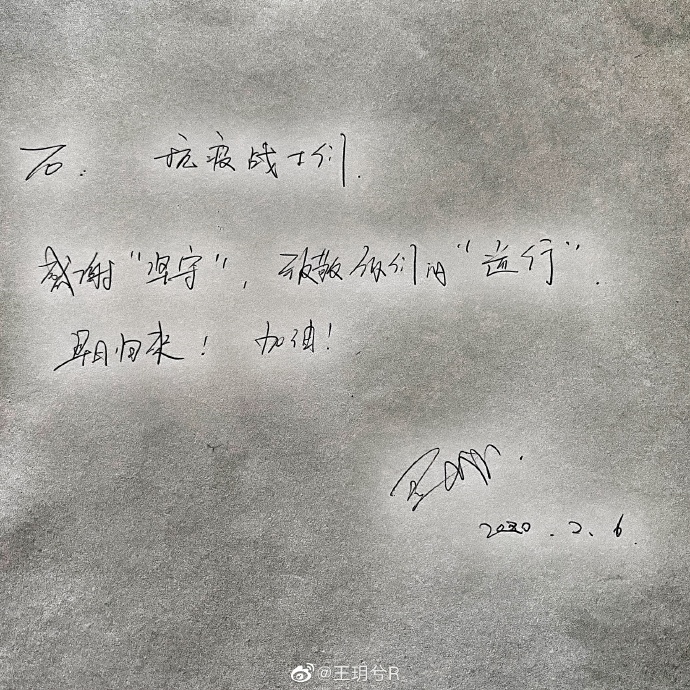 To: 抗疫战士们.
感谢"坚守", 致敬你们的"逆行".
早日归来! 加油!
2020.2.6.
@王玥兮R